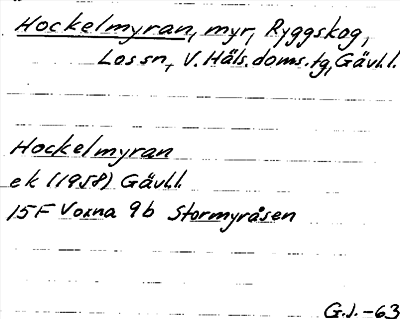 Hockelmyran, myr, Ryggskog,
Los sn, V. Häls. doms. tg, Gävl.l.
Hockelmyran
ek (1958) Gävl.l
15F Voxna 9b Stormyråsen
G.J. -63